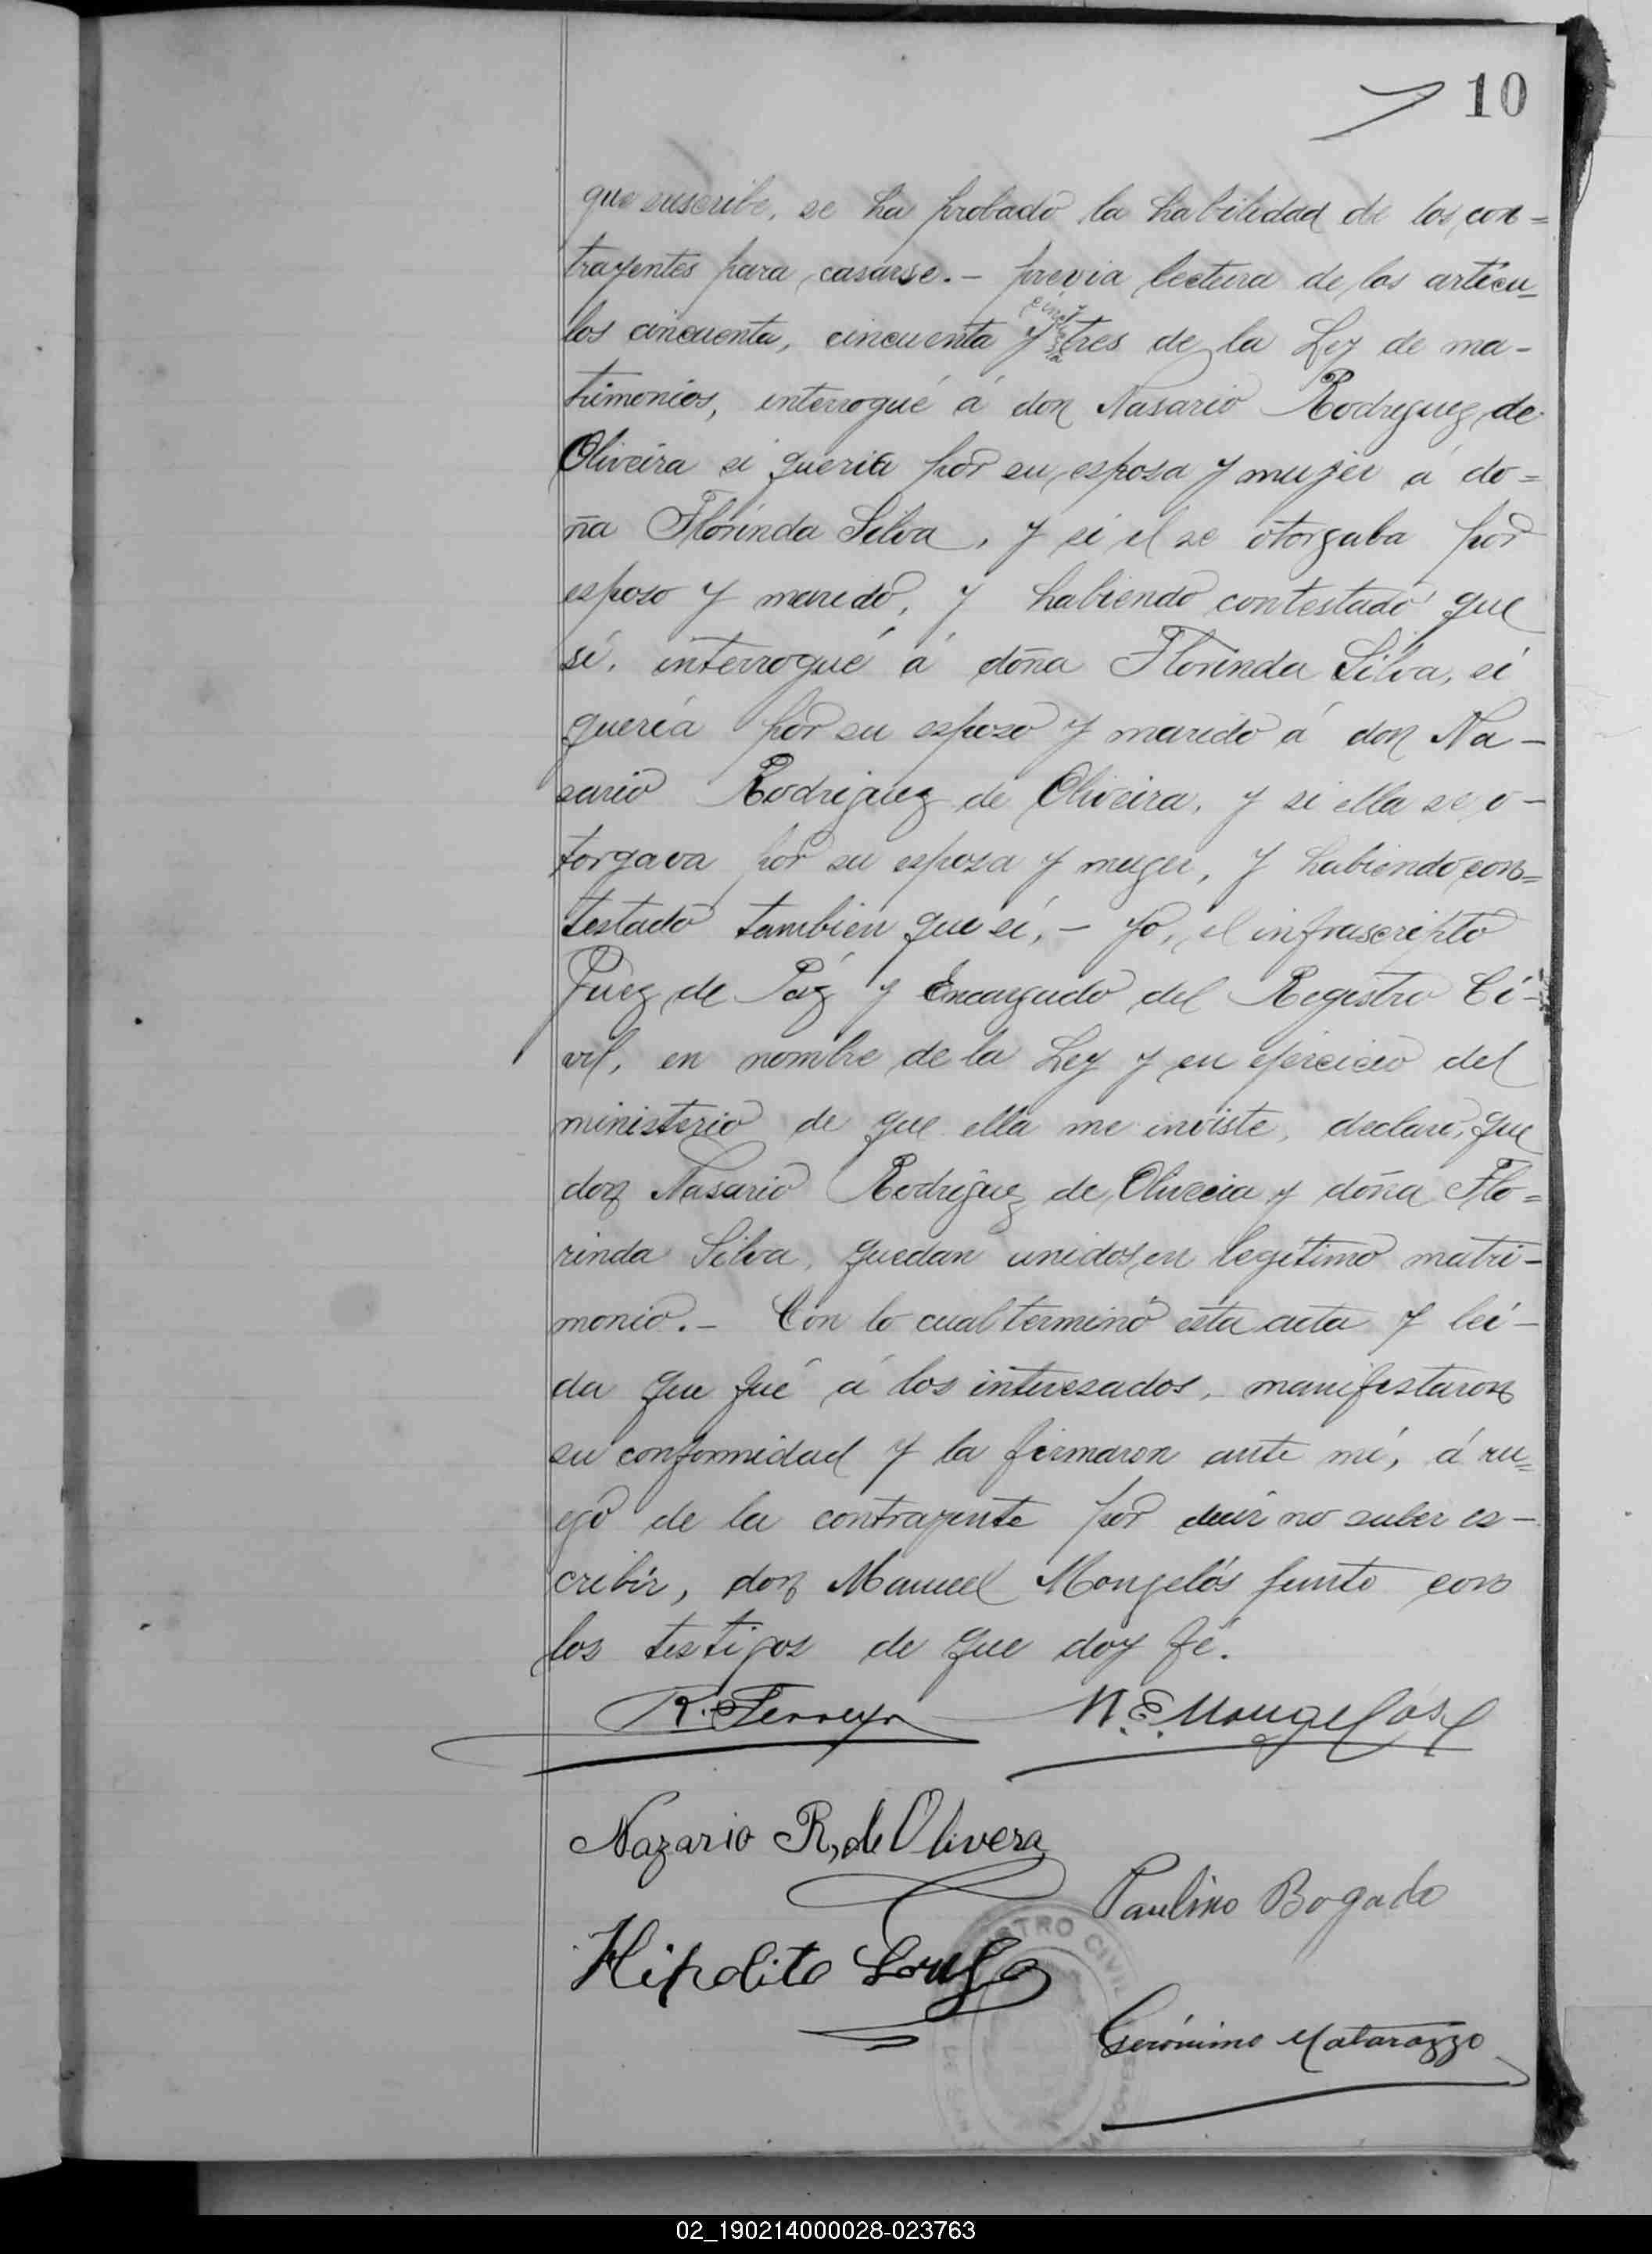 10
que suscribe, se ha probado la habilidad de los con=
trayentes para casarse.- previa lectura de los artícu=
los cincuenta, cincuenta y tres de la Ley de ma-
trimonios, interrogué á don Nasario Rodriguez de
Oliveira si queria por su esposa y mujer á do=
ña Florinda Silva, y si el se otorgaba por
esposo y marido, y habiendo contestado que
sí, interrogué á doña Florinda Silva, si
quería por su esposo y marido á don Na-
sario Rodriguez de Oliveira, y si ella se o-
torgava por su esposa y muger, y habiendo con=
testado tambien que sí,- Yo, el infrascripto
Juez de Páz y Encargado del Registro Ci-
vil, en nombre de la Ley y en ejercicio del
ministerio de que ella me inviste, declaro, que
don Nasario Rodriguez de Oliveira y doña Flo=
rinda Silva, quedan unidos en legítimo matri-
monio.- Con lo cual terminó esta acta y leí-
da que fué á los interesados, manifestaron
su conformidad y la firmaron ante mí, á rue=
go de la contrayente por decir no saber es-
cribir, don Manuel Mongelós junto con
los testigos de que doy fé.
R. Ferreyra M. E. Mongelós
Nazario R, de Olivera
Paulino Bogado
Hipolito
Gerónimo Matarazzo
REGISTRO CIVIL
02_190214000028-023763